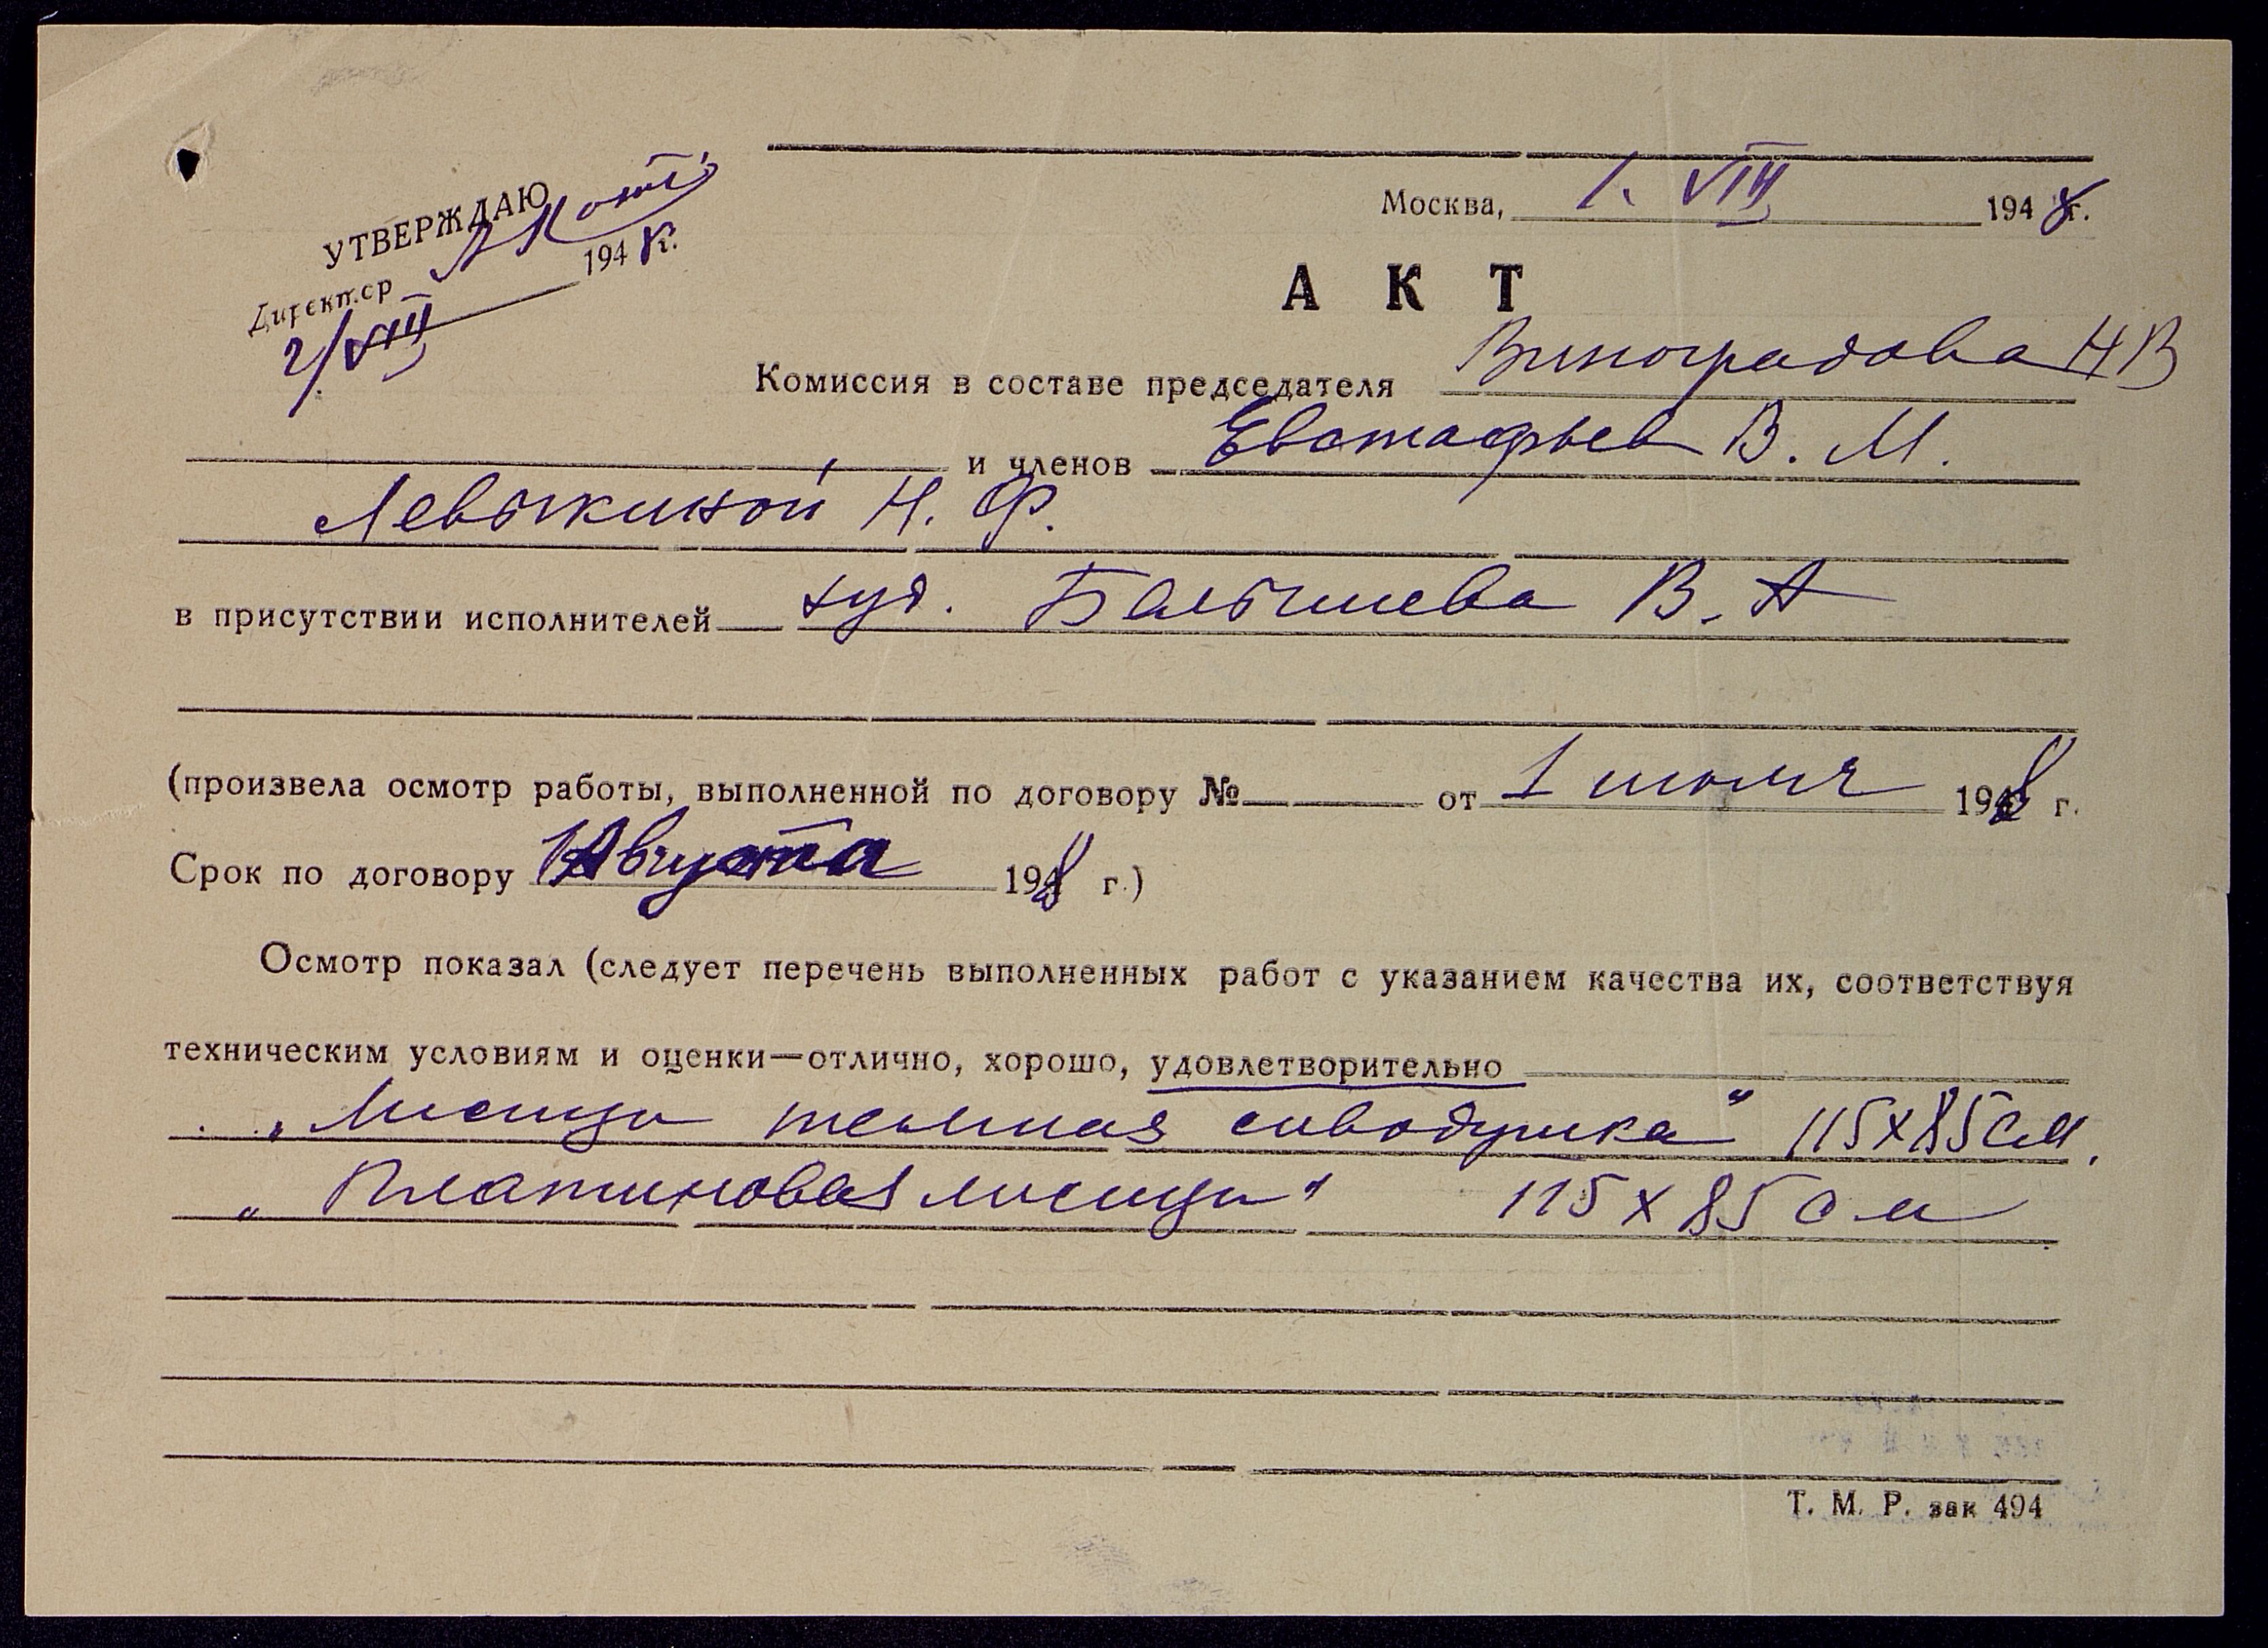 УТВЕРЖДАЮ
Директор А Котс
2/VIII 1948 г.
Москва, 1. VIII 1948 г.
АКТ
Комиссия в составе председателя Виноградова Н В
и членов Евстафьев В. М.
Левыкиной Н. Ф.
в присутствии исполнителей худ. Балышева В. А
(произвела осмотр работы, выполненной по договору № от 1 июля 1948 г.
Срок по договору 1 Августа 1948 г.)
Осмотр показал (следует перечень выполненных работ с указанием качества их, соответствуя
техническим условиям и оценки—отлично, хорошо, удовлетворительно
„Лисица темная сиводушка" 115х85 см,
„Платиновая лисица" 115 х 85 см
Т. М. Р. зак 494